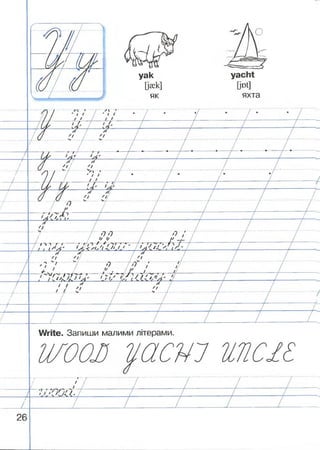 Yy
yak yacht
[jæk] [jɒt]
як яхта
Y Y Y
y y y
Yy Yy
yak
my yellow yacht
Happy birthday!
Write. Запиши малими літерами.
WOOD YACHT UNCLE
wood
26